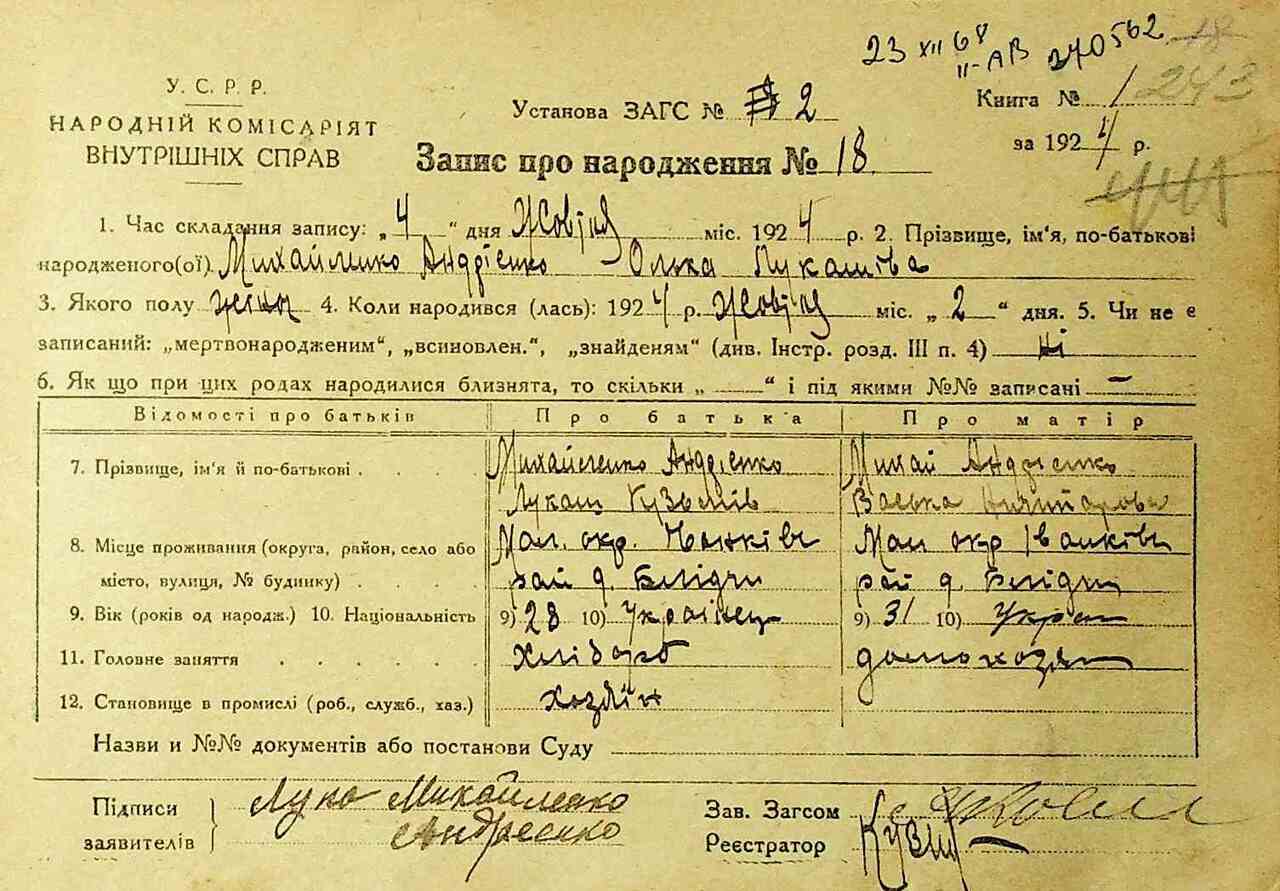 23 XII 68
II-АВ 270562
У. С. Р. Р.
НАРОДНІЙ КОМІСАРІЯТ
ВНУТРІШНІХ СПРАВ
Установа ЗАГС № 2
Книга № 1 243
за 1924 р.
Запис про народження № 18
1. Час складання запису: „4“ дня Жовтня міс. 1924 р. 2. Прізвище, ім'я, по-батькові
народженого(ої) Михайленко Андрієнко Олька Лукашіва
3. Якого полу жіноч 4. Коли народився (лась): 1924 р. Жовтня міс. „2“ дня. 5. Чи не є
записаний: „мертвонародженим“, „всиновлен.“, „знайденям“ (див. Інстр. розд. III п. 4) Ні
6. Як що при цих родах народилися близнята, то скільки „ “ і під якими №№ записані —
Відомості про батьків Про батька Про матір
7. Прізвище, ім'я й по-батькові . . . . Михайленко Андрієнко Михай Андрієнко
Лукаш Кузьмів
8. Місце проживання (округа, район, село або Мал. окр. Мал окр Іванків
місто, вулиця, № будинку) . . . . рай д. рай д.
9. Вік (років од народж.) 10. Національність 9) 28 10) Українець 9) 31 10) Украї
11. Головне заняття . . . . . . Хлібороб домохозяй
12. Становище в промислі (роб., служб., хаз.) хозяїн
Назви и №№ документів або постанови Суду
Підписи
заявителів
Лука Михайленко
Андреєнко
Зав. Загсом
Реєстратор